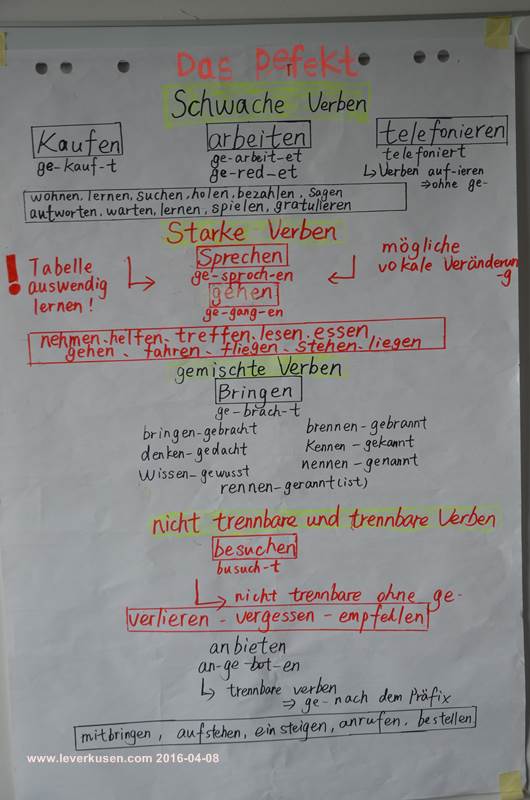 Das Pefekt
r
Schwache Verben
Kaufen arbeiten telefonieren
ge-kauf-t ge-arbeit-et telefoniert
ge-red-et ↳ Verben auf-ieren
⇒ ohne ge-
wohnen, lernen, suchen, holen, bezahlen, sagen
antworten, warten, lernen, spielen, gratulieren
Starke Verben
! Tabelle auswendig lernen!
Sprechen
ge-sproch-en
gehen
ge-gang-en
mögliche
vokale Veränderun
-g
nehmen, helfen, treffen, lesen, essen,
gehen, fahren, fliegen, stehen, liegen
gemischte Verben
Bringen
ge-brach-t
bringen-gebracht brennen-gebrannt
denken-gedacht Kennen-gekannt
Wissen-gewusst nennen-genannt
rennen-gerannt (ist)
nicht trennbare und trennbare Verben
besuchen
busuch-t
↳ nicht trennbare ohne ge-
verlieren - vergessen - empfehlen
anbieten
an-ge-bot-en
↳ trennbare verben
⇒ ge- nach dem Präfix
mitbringen, aufstehen, einsteigen, anrufen, bestellen
www.leverkusen.com 2016-04-08